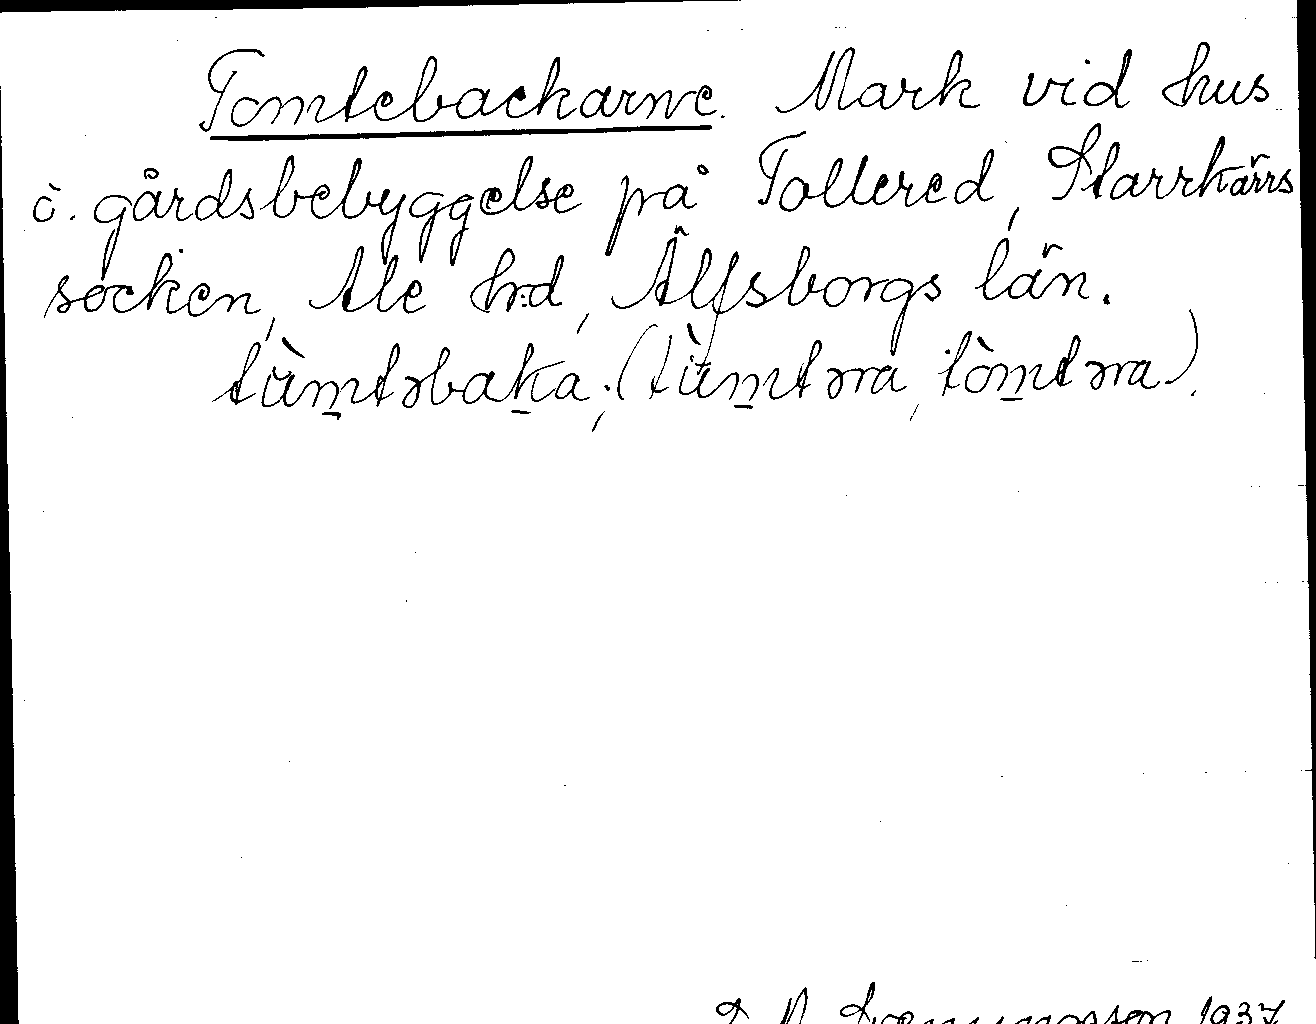 Tomtebackarne. Mark vid hus
i gårdsbebyggelse på Tollered, Starrkärrs
socken, Ale hrd, Älfsborgs län.
tùmtəbaka; (tùmtəra, tòmtəra).
1937